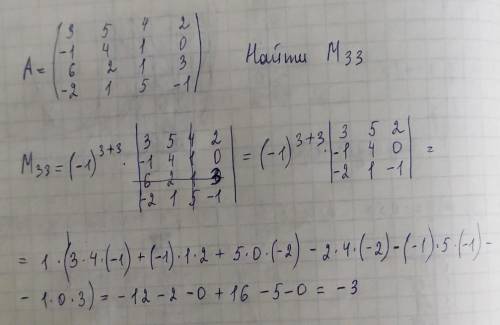 A = ( 3 5 4 2
-1 4 1 0
6 2 1 3
-2 1 5 -1 )
Найти M33
M33 = (-1)^3+3 · | 3 5 4 2
-1 4 1 0
6 2 1 3
-2 1 5 -1 | = (-1)^3+3 · | 3 5 2
-1 4 0
-2 1 -1 | =
= 1 · (3·4·(-1) + (-1)·1·2 + 5·0·(-2) - 2·4·(-2) - (-1)·5·(-1) -
- 1·0·3) = -12 - 2 - 0 + 16 - 5 - 0 = -3